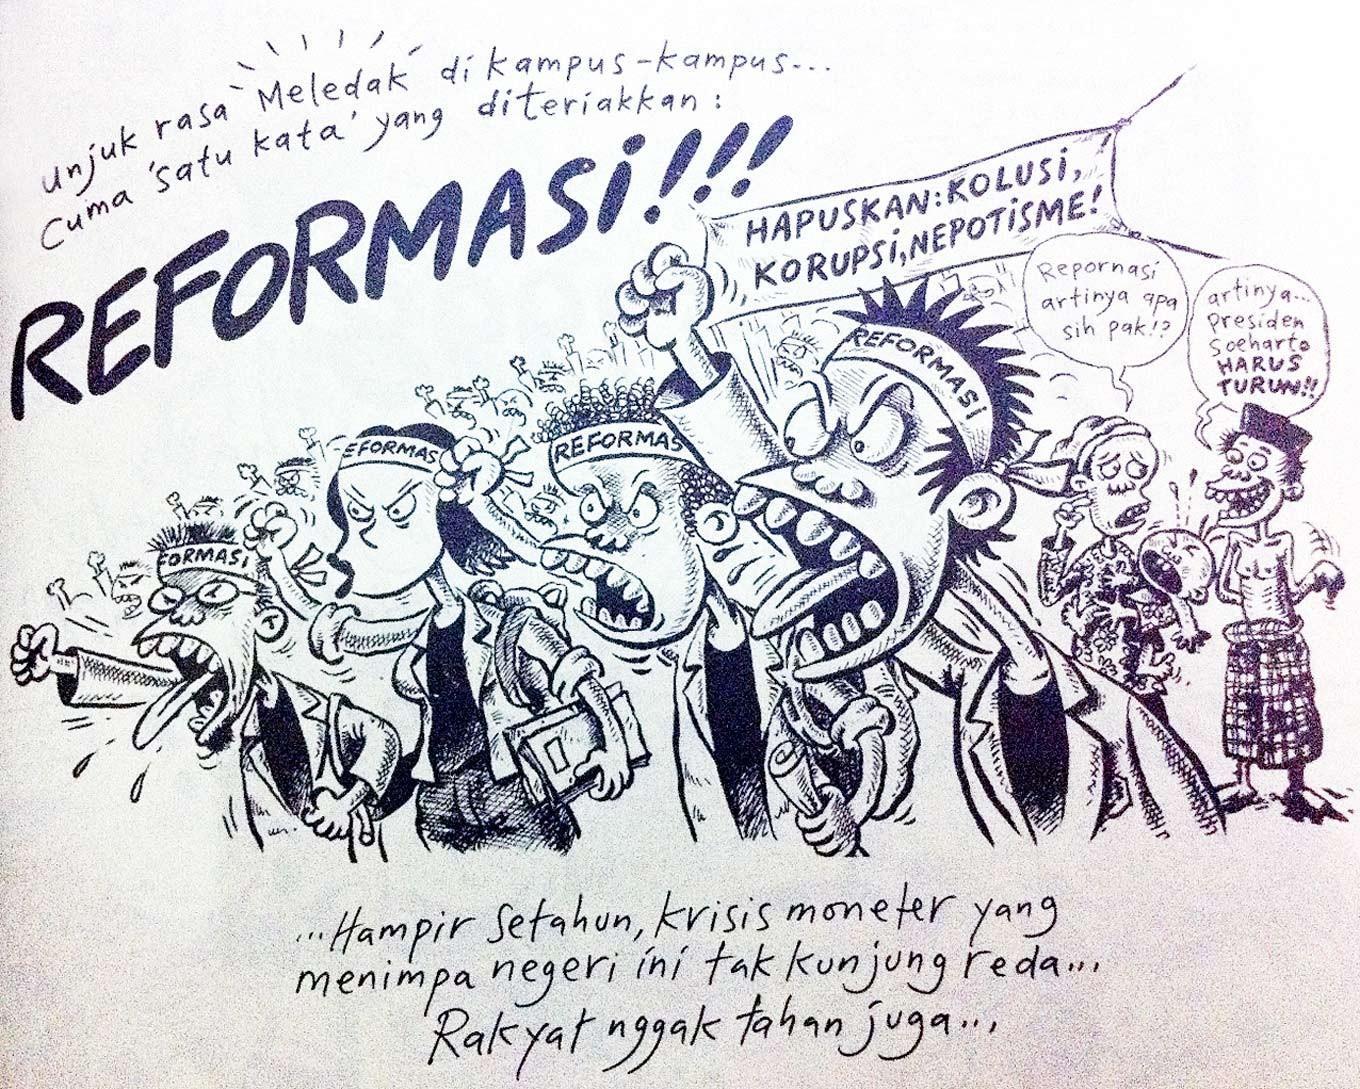 Unjuk rasa 'Meledak' di kampus-kampus...
Cuma 'satu kata' yang diteriakkan:
REFORMASI!!!
HAPUSKAN: KOLUSI,
KORUPSI, NEPOTISME!
Repornasi
artinya apa
sih pak!?
artinya...
Presiden
Soeharto
HARUS
TURUN!!
FORMASI
EFORMAS
REFORMAS
REFORMASI
...Hampir Setahun, krisis moneter yang
menimpa negeri ini tak kunjung reda...
Rakyat nggak tahan juga...